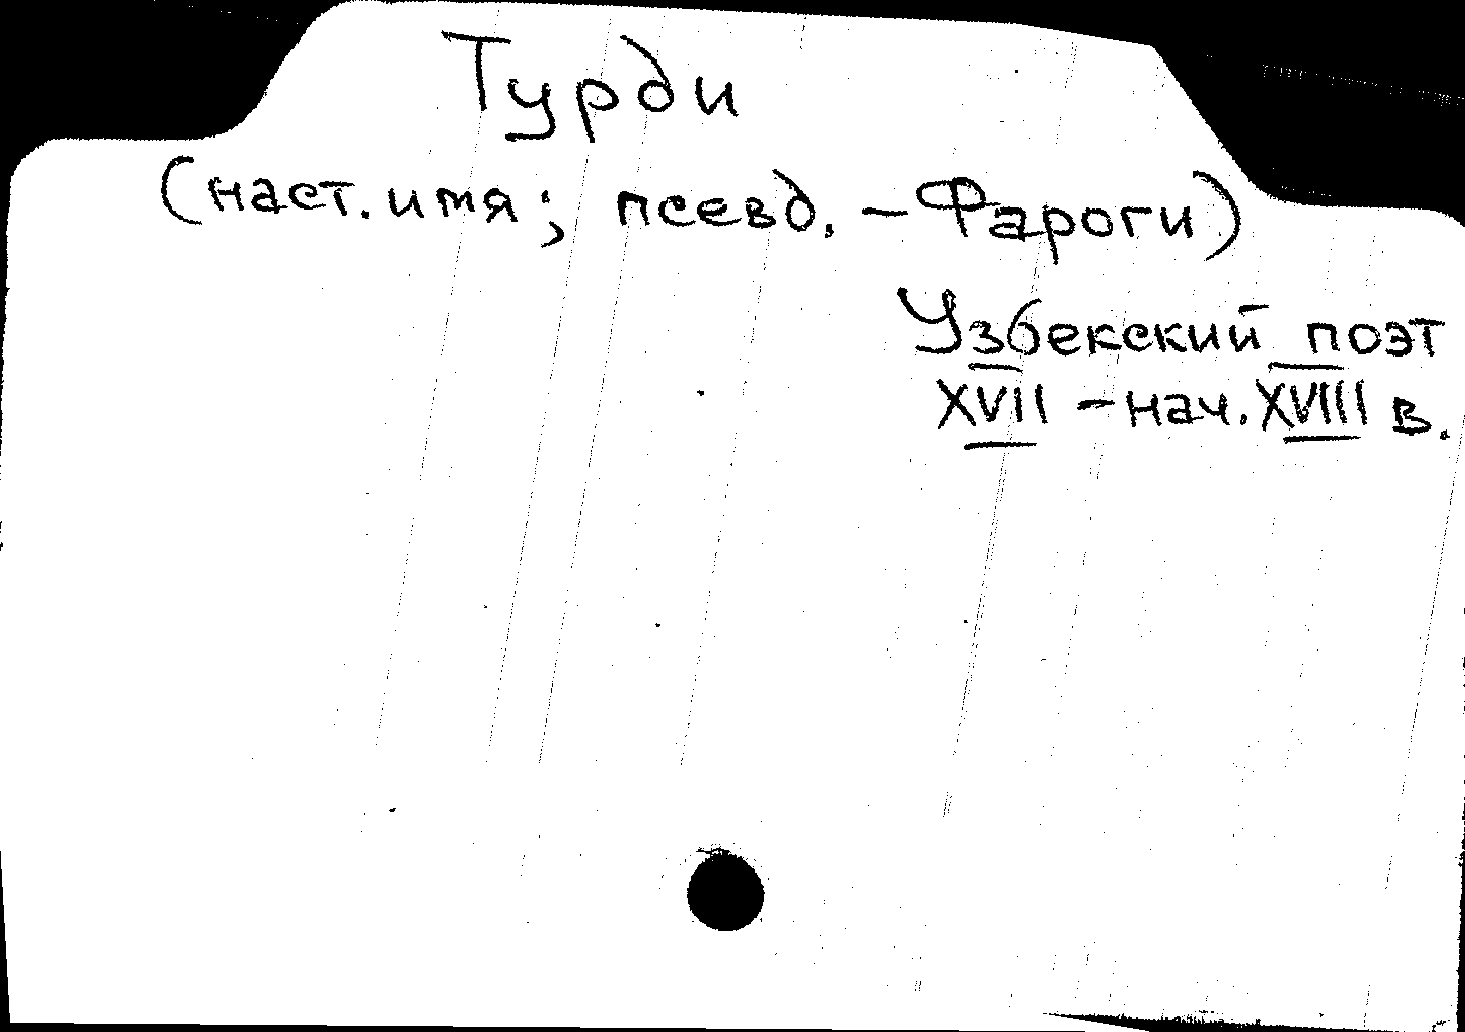 Турди
(наст. имя; псевд. - Фароги)
Узбекский поэт
XVII - нач. XVIII в.